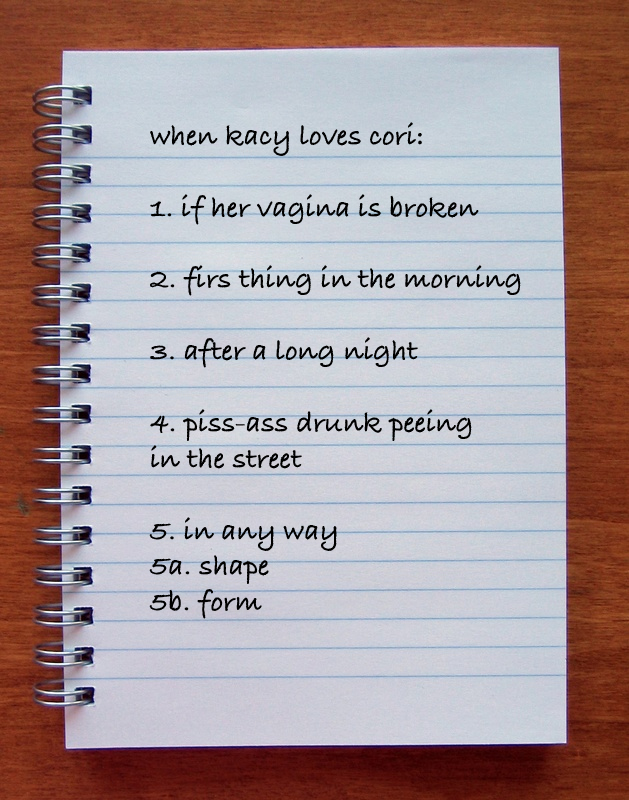 when kacy loves cori:
1. if her vagina is broken
2. firs thing in the morning
3. after a long night
4. piss-ass drunk peeing
in the street
5. in any way
5a. shape
5b. form